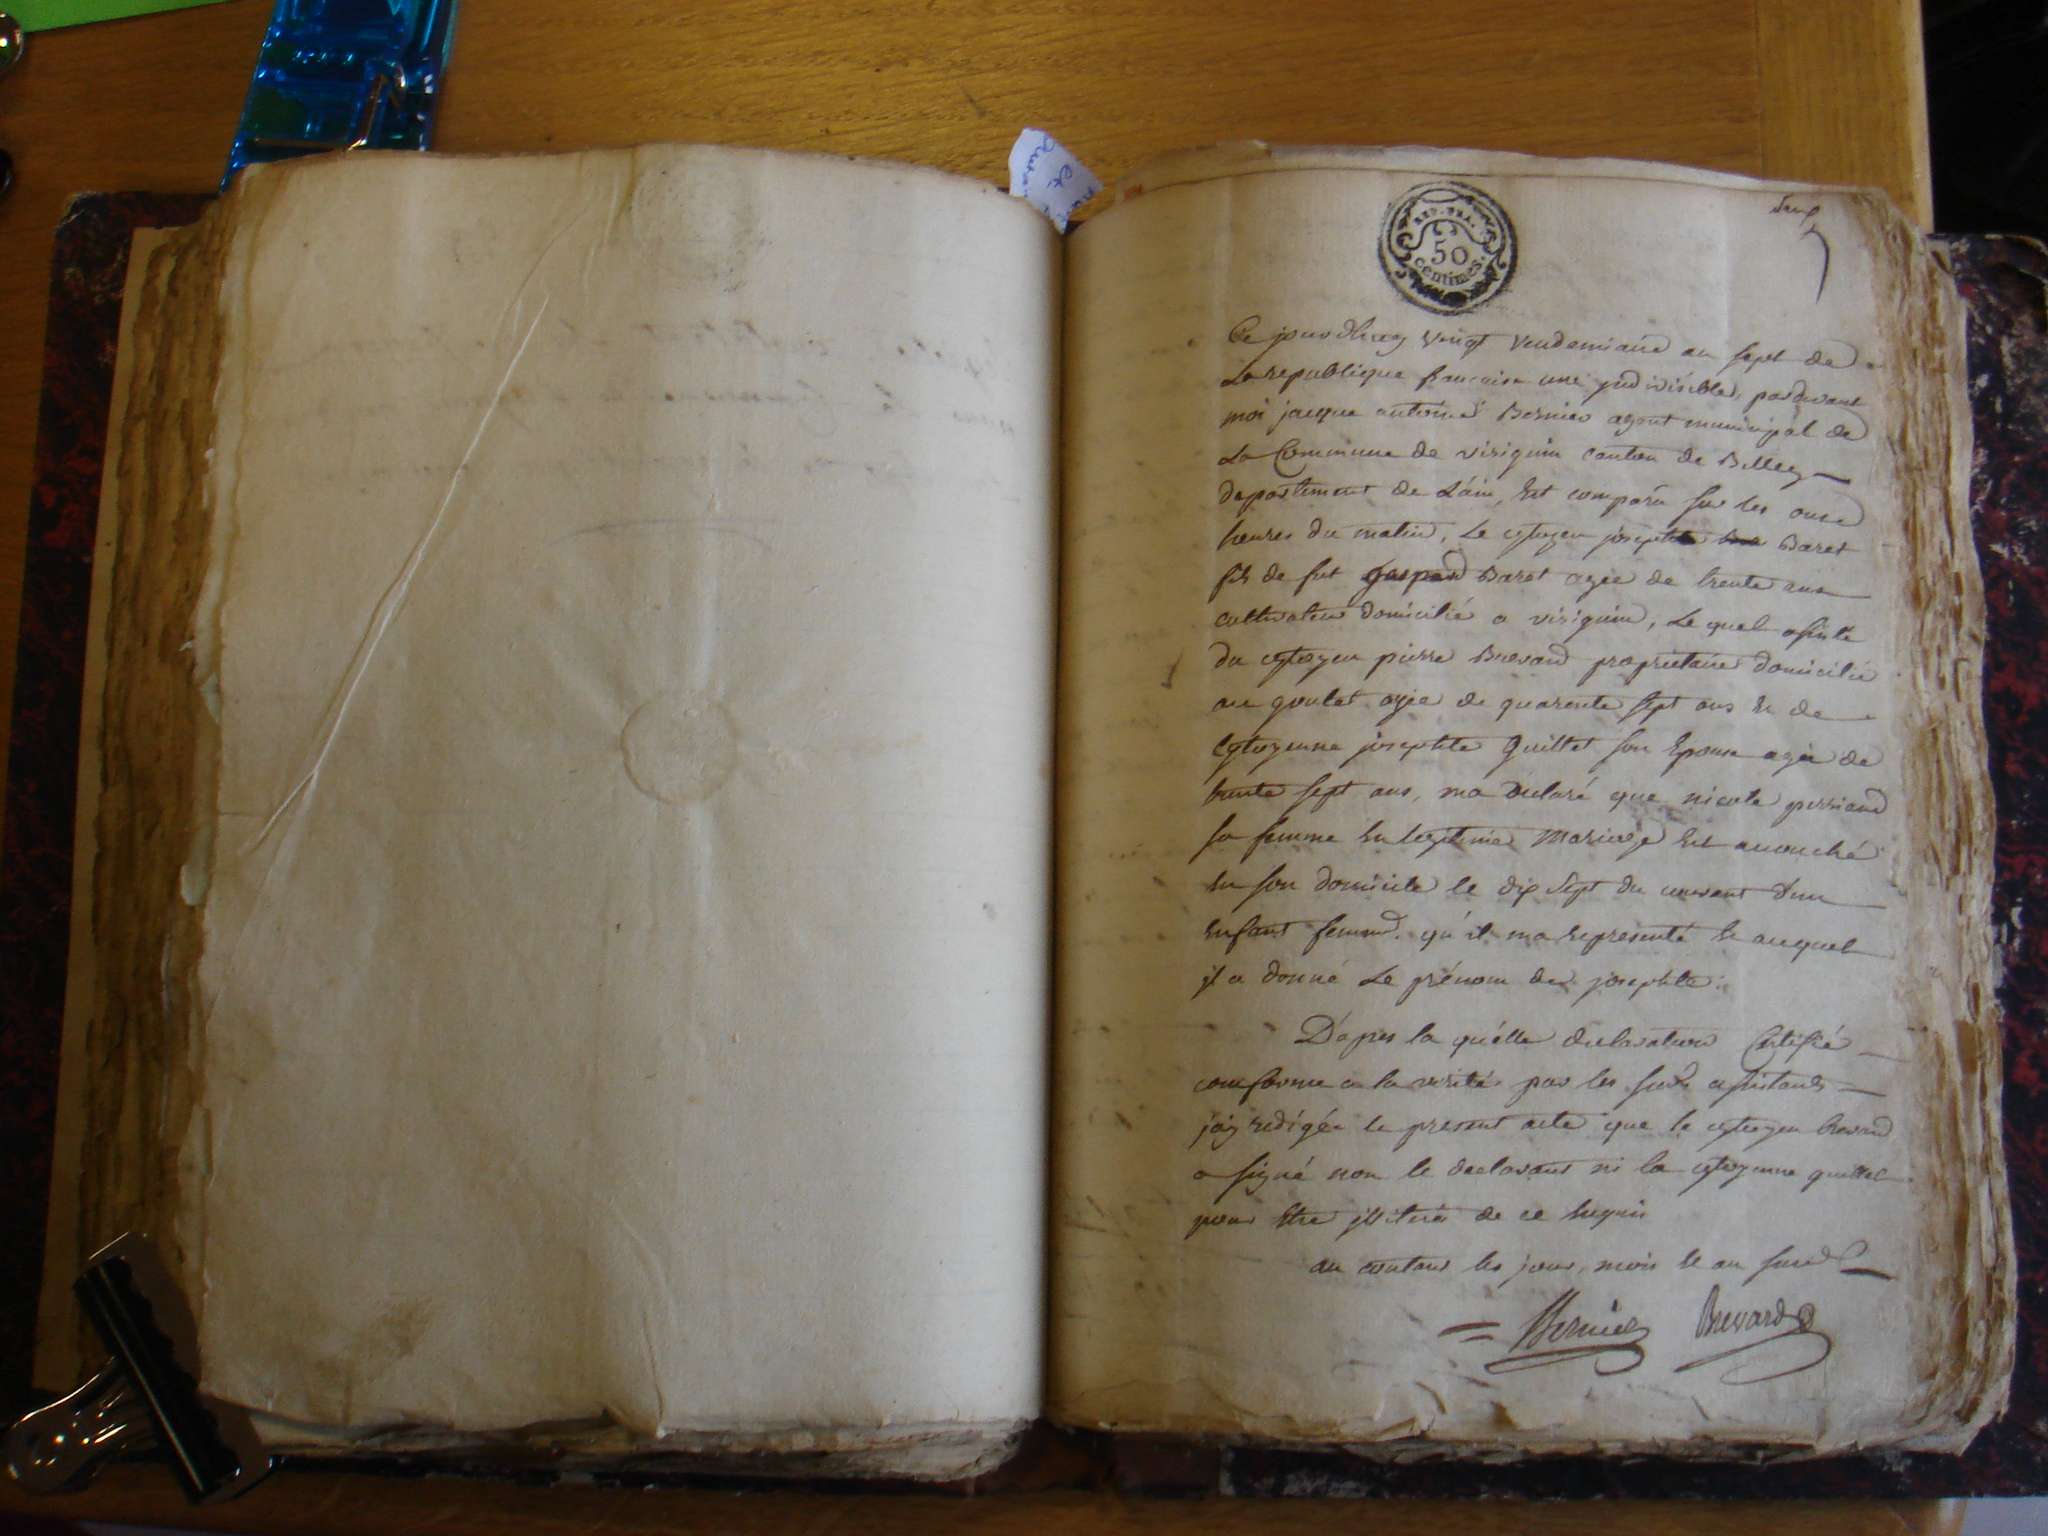 REP. FRA.
50
centimes.
Ce jourdhuy vingt vendemiaire an sept de
La republique francaise une indivisible, pardevant
moi jacque antoine Bernier agent municipal de
La Commune de virignin canton de Belley
departement de L'ain, Est comparu sur les onze
heures du matin, Le cytoyen josephte Baret
fils de fut gaspard Baret agée de trente ans
cultivateur domicilié a virignin, Le quel assisté
du cytoyen pierre Brevard proprietaire domicilié
au goulet agée de quarente sept ans Et de
Cytoyenne josephte Quillet son Epouse agée de
trente sept ans, ma declaré que nicole
sa femme En legitime Mariage Est accouché
En son domicile le dix sept du courant d'un
Enfant qu'il ma representé Et auquel
il a donné Le prénom de josephte.
D'apres la quélle declaration Certifié
conforme a la verité par les susd assistants
j'ay redigée le present acte que le cytoyen brevard
a signé non le declarant ni la cytoyenne quillet
pour Etre illiteré de ce Enquis
au les jour, mois Et an susd
Bernier Brevard